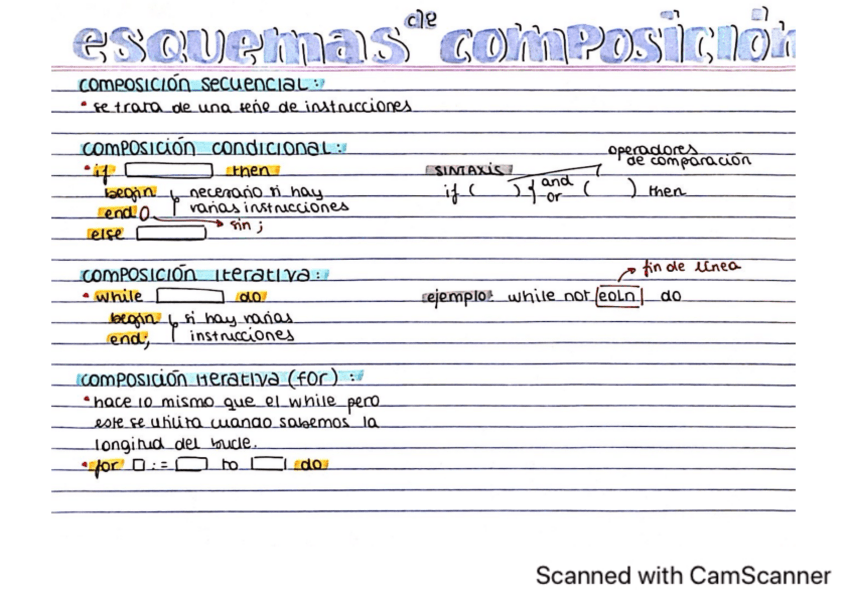 esquemas de composición
composición secuencial:
• se trata de una serie de instrucciones
composición condicional:
• if then
begin necesario si hay
end varias instrucciones
sin ;
else
SINTAXIS
operadores
de comparación
if ( ) { and ( ) then
or
composición iterativa:
• while do
begin si hay varias
end; instrucciones
fin de línea
ejemplo: while not eoln do
composición iterativa (for):
• hace lo mismo que el while pero
este se utiliza cuando sabemos la
longitud del bucle.
• for := to do
Scanned with CamScanner